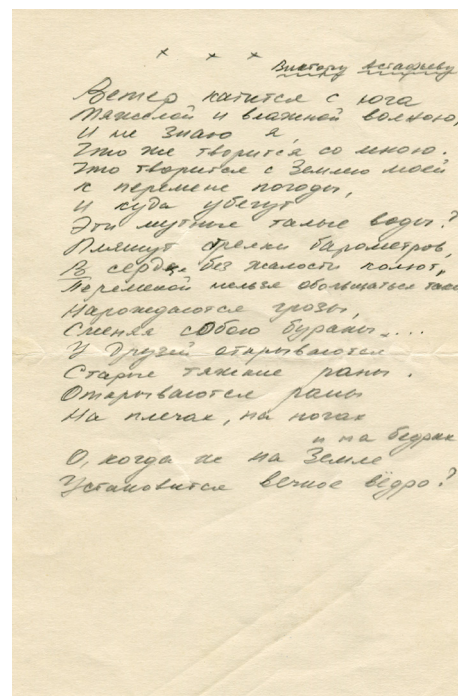 × × ×
Виктору Астафьеву
Ветер катится с юга
Тяжелой и влажной волною,
И не знаю я,
Что же творится со мною.
Что творится с Землею моей
К перемене погоды,
И куда убегут
Эти мутные талые воды?
Пляшут стрелки барометров,
В сердце без жалости колют,
Переменой нельзя обольщаться
Нарождаются грозы,
Сменяя собою бураны....
У друзей открываются
Старые тяжкие раны.
Открываются раны
На плечах, на ногах
и на бедрах
О, когда же на Земле
Установится вечное вёдро?